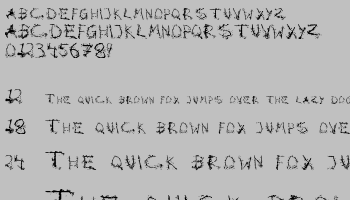 ABCDEFGHIJKLMNOPQRSTUVWXYZ
ABCDEFGHIJKLMNOPQRSTUVWXYZ
0123456789
12 THE QUICK BROWN FOX JUMPS OVER THE LAZY DOG
18 THE QUICK BROWN FOX JUMPS OVE
24 THE QUICK BROWN FOX JU